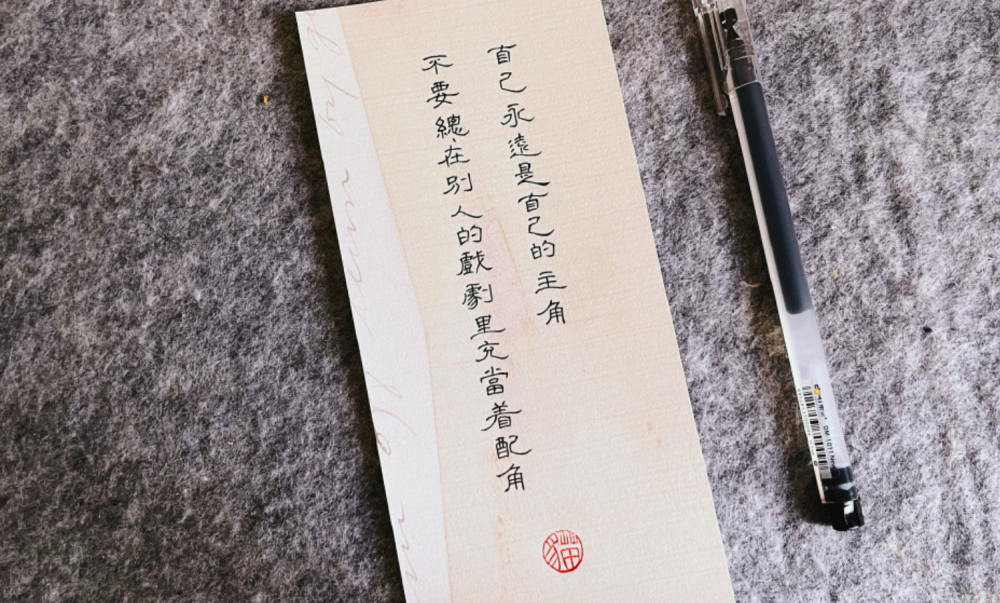 自己永遠是自己的主角
不要總在別人的戲劇里充當着配角
貓